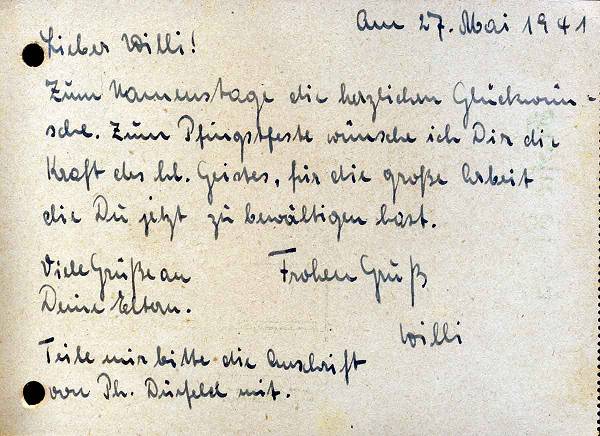 Am 27. Mai 1941
Lieber Willi!
Zum Namenstage die herzlichen Glückwün-
sche. Zum Pfingstfeste wünsche ich Dir die
Kraft des hl. Geistes, für die große Arbeit
die Du jetzt zu bewältigen hast.
Viele Grüße an
Deine Eltern.
Frohen Gruß
Willi
Teile mir bitte die Anschrift
von Ph. Dürfeld mit.